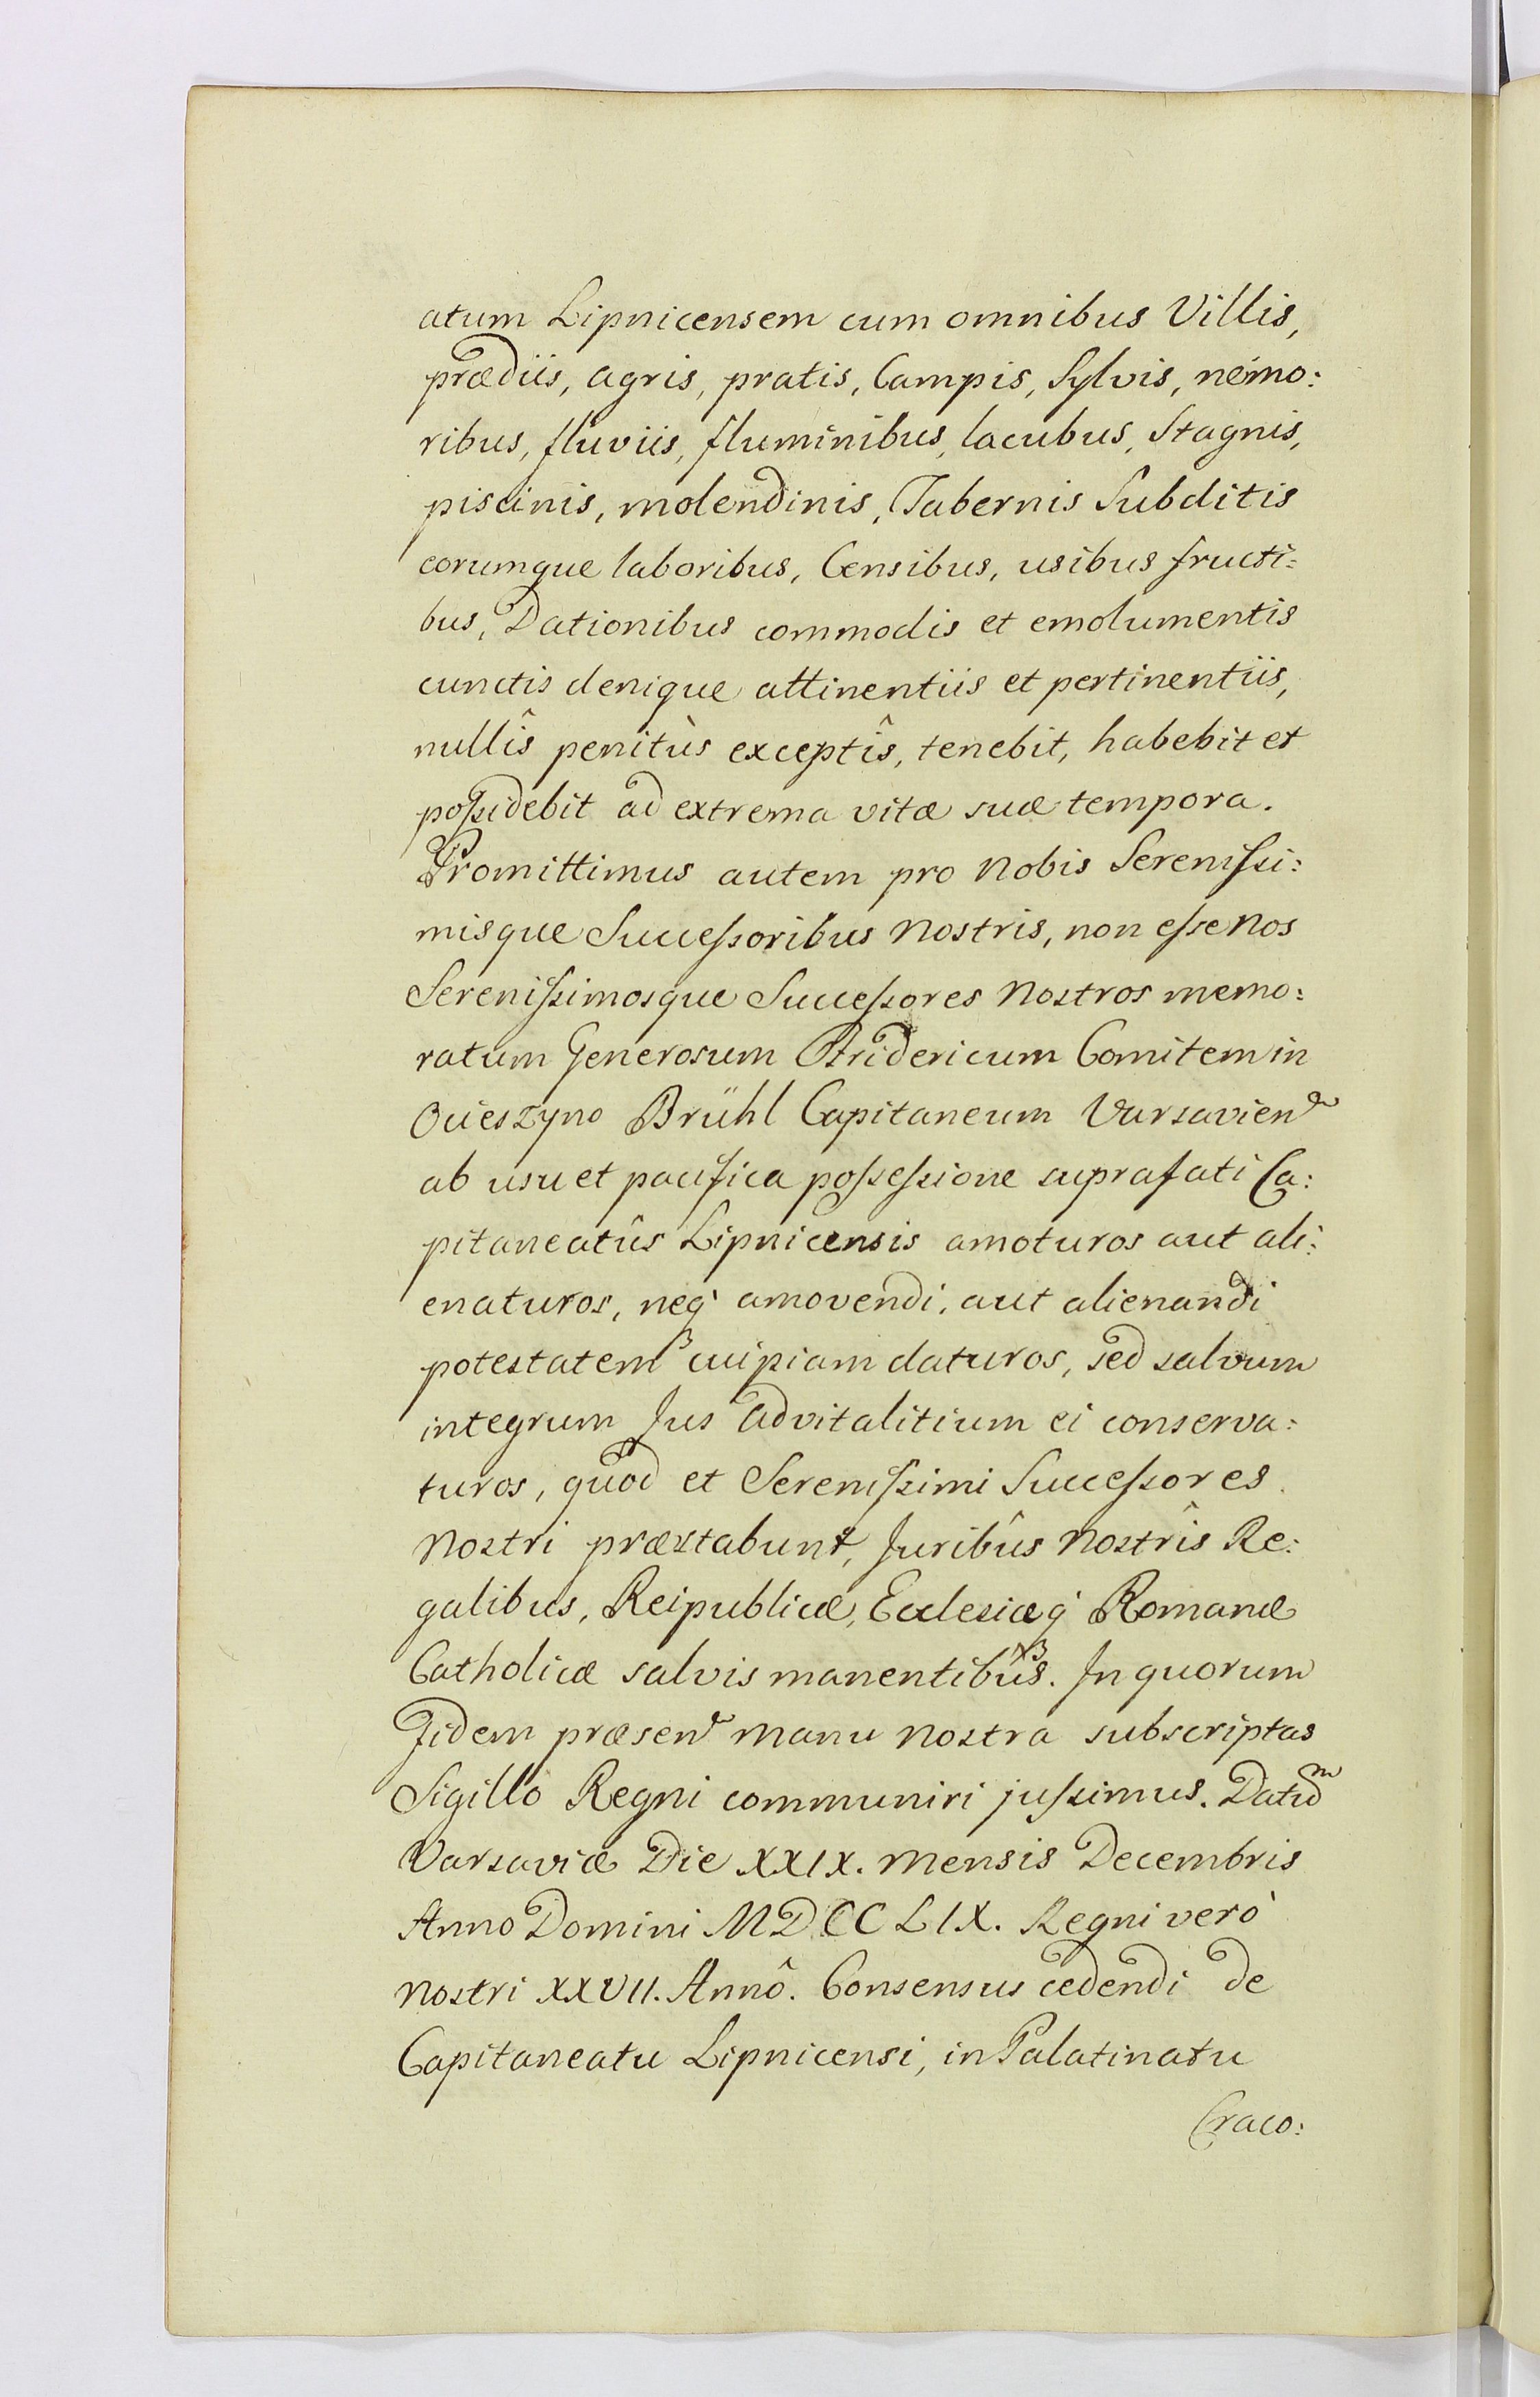 atum Lipnicensem cum omnibus Villis,
prædiis, agris, pratis, Campis, Sylvis, nemo:
ribus, fluviis, fluminibus, lacubus, Stagnis,
piscinis, molendinis, Tabernis Subditis
eorumque laboribus, Censibus, usibus fructi:
bus, Dationibus commodis et emolumentis
cunctis denique attinentiis et pertinentiis,
nullîs penitùs exceptîs, tenebit, habebit et
poſsidebit ad extrema vitæ suæ tempora.
Promittimus autem pro Nobis Sereniſsi:
misque Succeſsoribus Nostris, non eſse Nos
Sereniſsimosque Succeſsores Nostros memo:
ratum Generosum Fridericum Comitem in
Ocieszyno Brühl Capitaneum Varsavien
ab usu et pacifica poſseſsione suprafati Ca:
pitaneatûs Lipnicensis amoturos aut ali:
enaturos, neq amovendi, aut alienandi
potestatem cuipiam daturos, sed salvum
integrum Jus advitalitium ei conserva:
turos, quod et Sereniſsimi Succeſsores
Nostri præstabunt, Juribûs Nostrîs Re:
galibus, Reipublicæ, Ecclesiæq Romanæ
Catholicæ salvis manentibus. In quorum
Fidem præsen manu Nostra subscriptas
Sigillo Regni communiri juſsimus. Datum
Varsaviæ Die XXIX. Mensis Decembris
Anno Domini MDCCLIX. Regni verò
Nostri XXVII. Annô. Consensus cedendi de
Capitaneatu Lipnicensi, in Palatinatu
Craco: